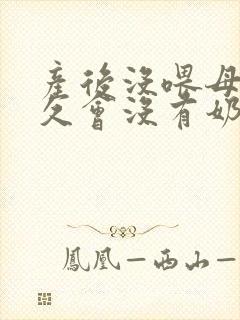 産後沒喂母
久會沒有奶
鳳凰—西山—